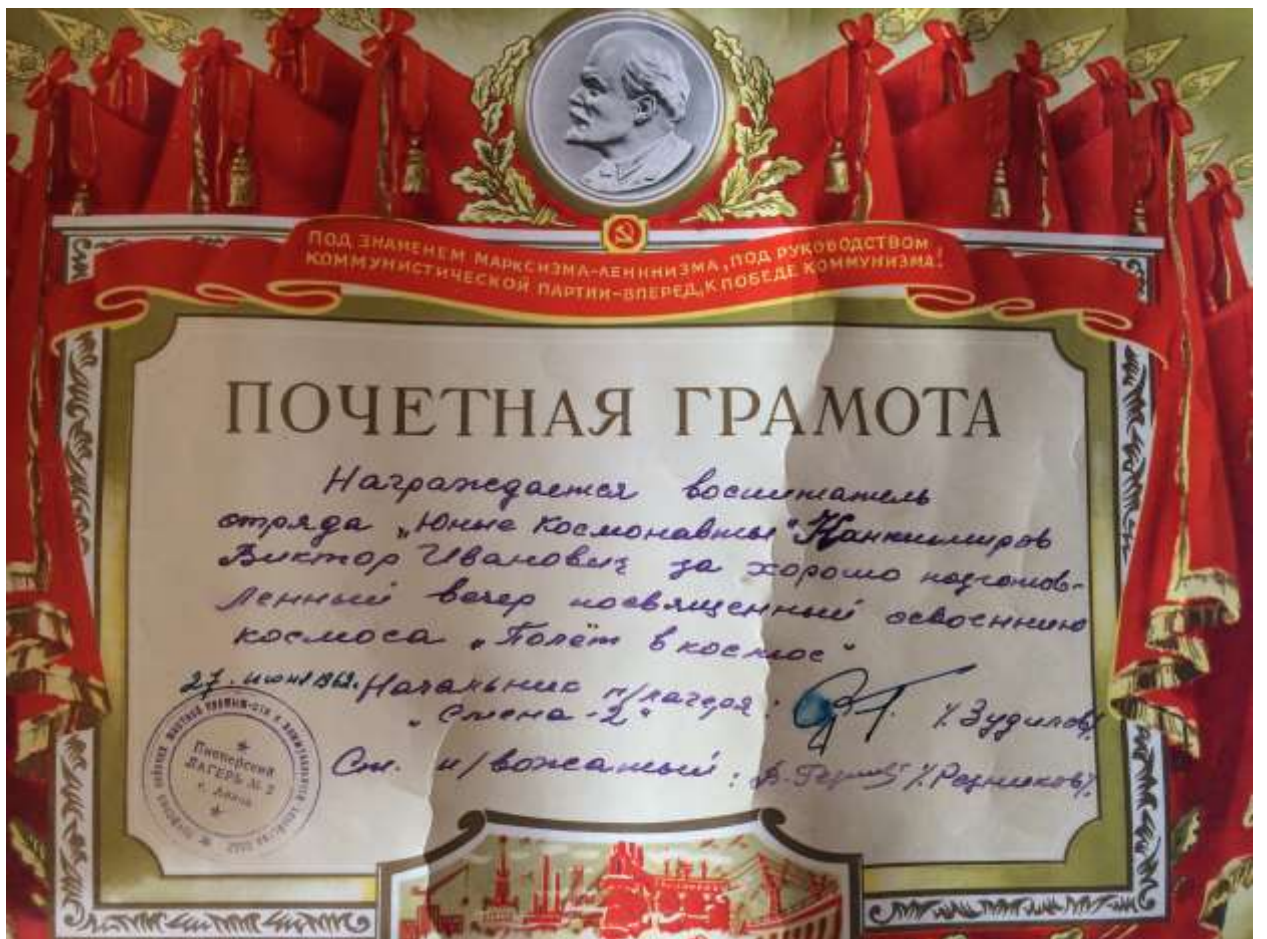 ПОД ЗНАМЕНЕМ МАРКСИЗМА-ЛЕНИНИЗМА, ПОД РУКОВОДСТВОМ
КОММУНИСТИЧЕСКОЙ ПАРТИИ-ВПЕРЕД, К ПОБЕДЕ КОММУНИЗМА!
ПОЧЕТНАЯ ГРАМОТА
Награждается воспитатель
отряда „Юные Космонавты"
Виктор Иванович за хорошо подготов-
ленный вечер посвященный освоению
космоса „Полёт в космос"
27. июня
Начальник п/лагеря:
„Смена-2"
/.Зудилов/.
Ст. п/вожатый: /.Резников/.
Пионерский
ЛАГЕРЬ № 2